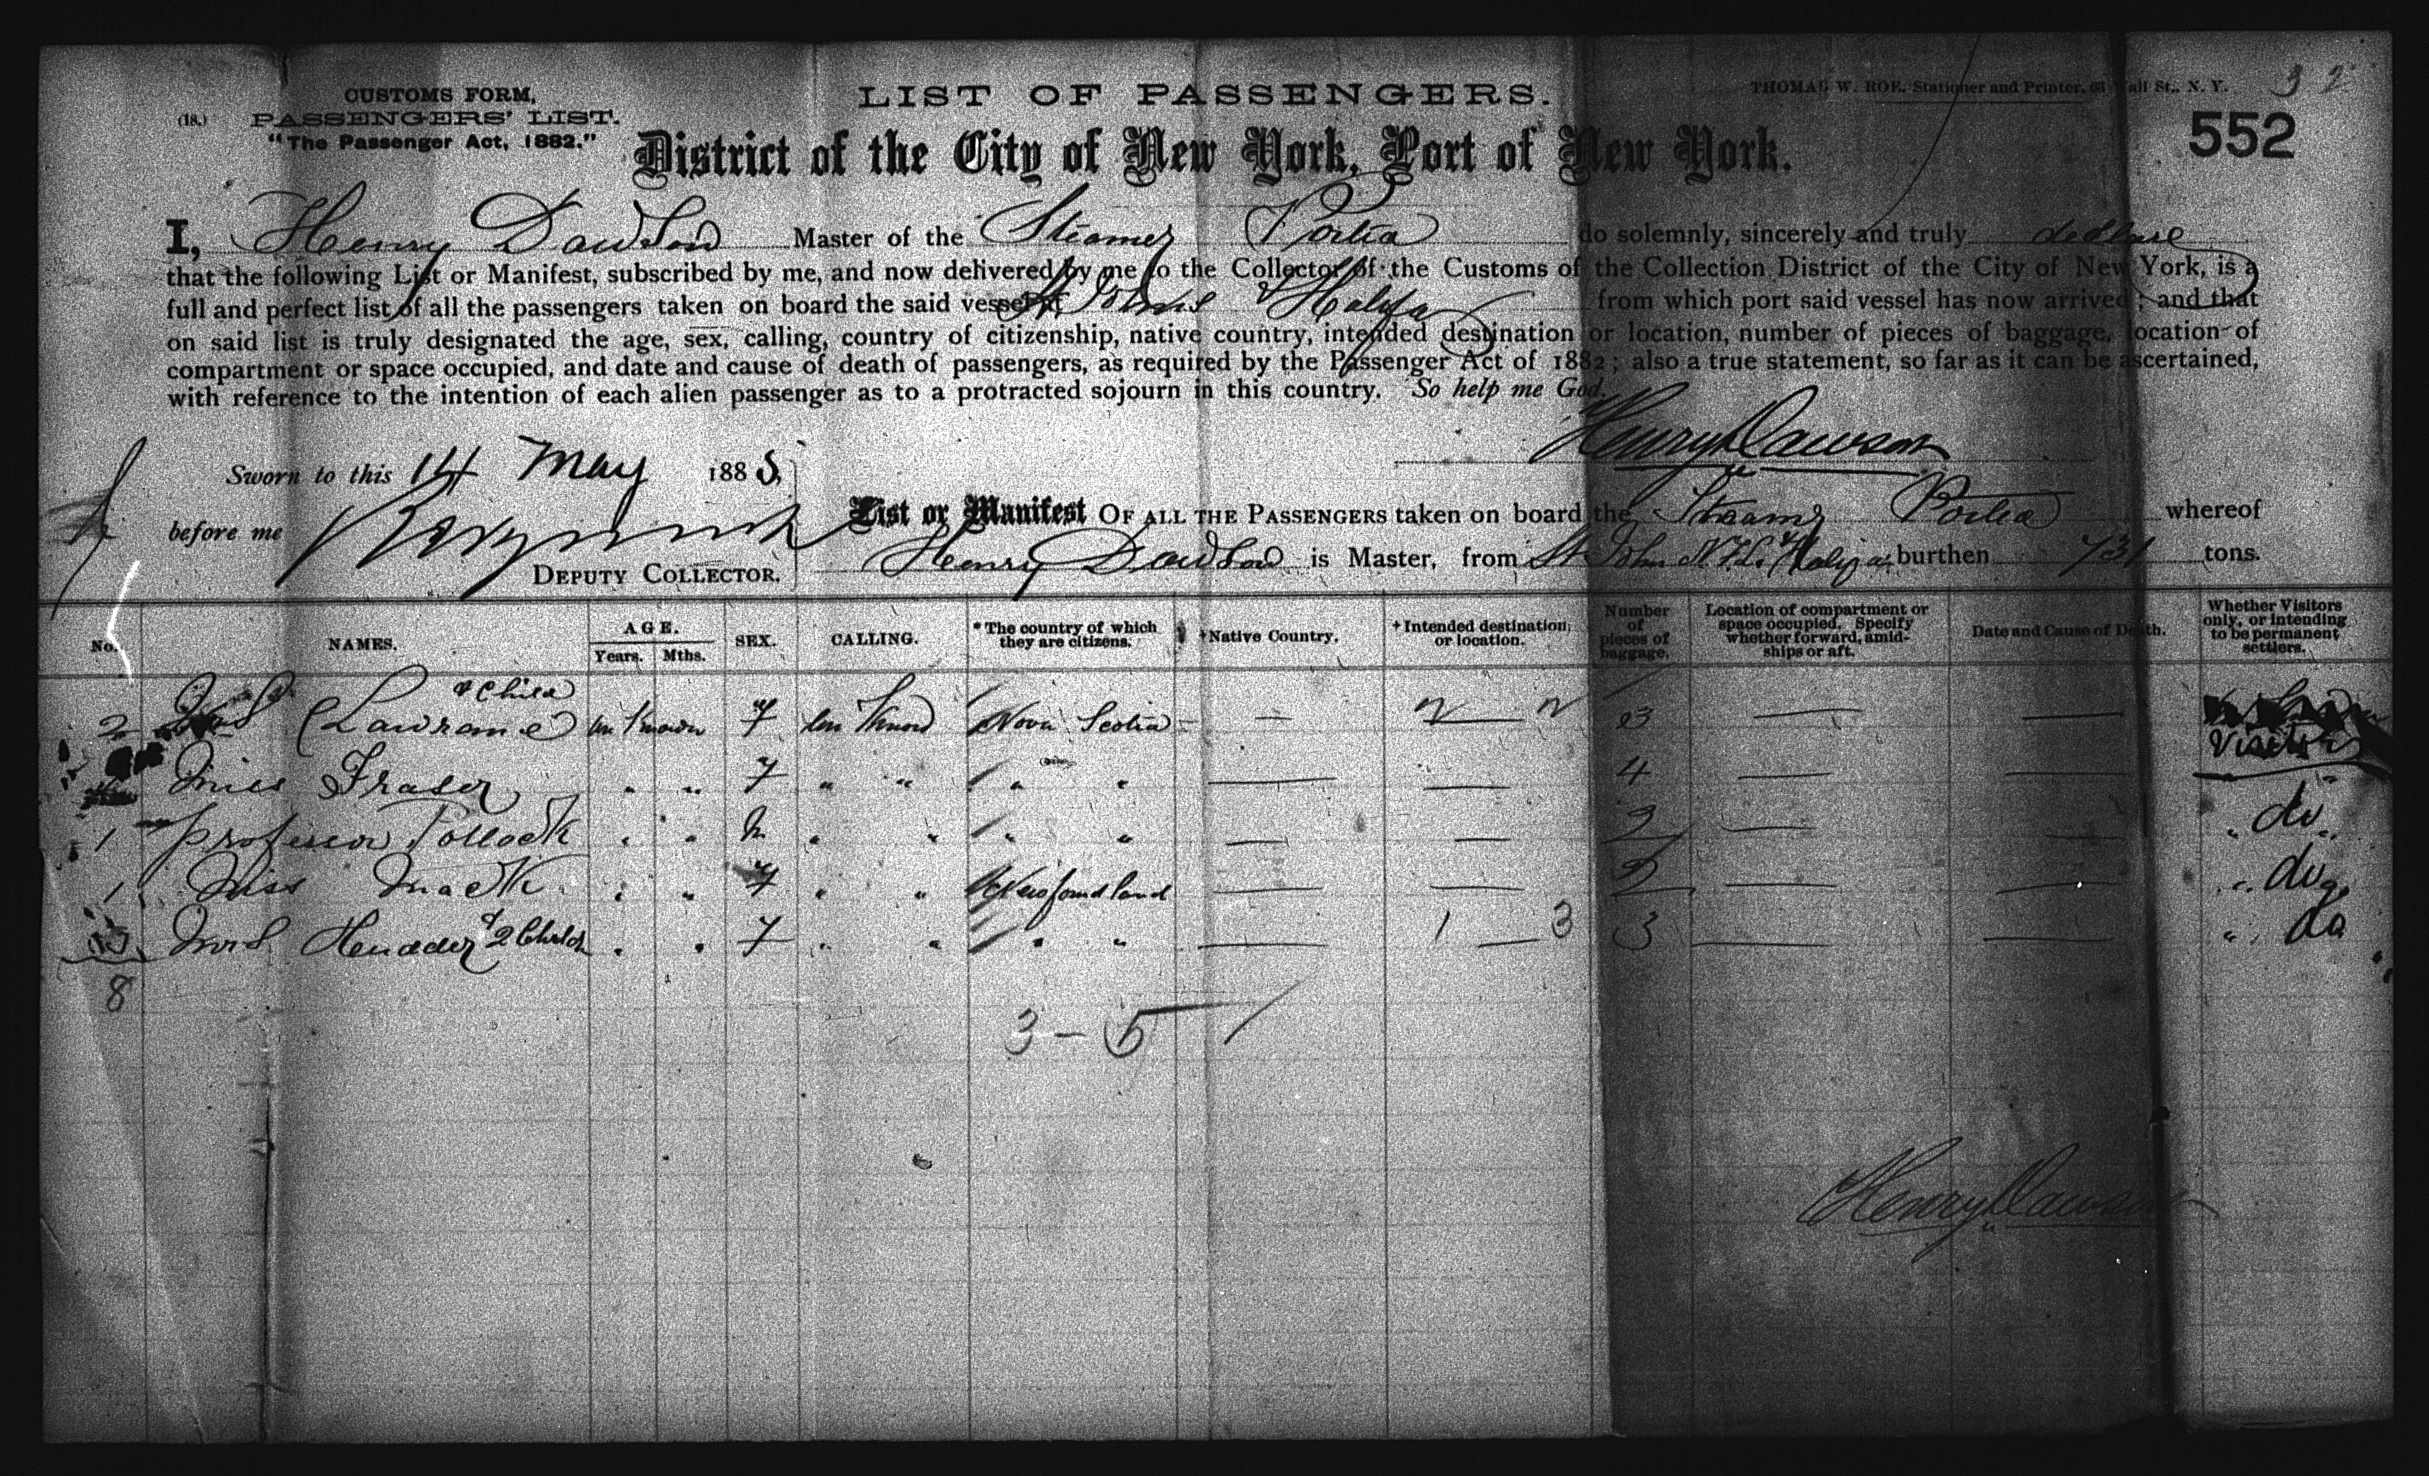 CUSTOMS FORM,
(18.) PASSENGERS' LIST.
"The Passenger Act, 1882."
LIST OF PASSENGERS.
THOMAS W. ROE, Stationer and Printer, 63 Wall St., N. Y.
3 2
552
District of the City of New York, Port of New York.
I, Henry Dawson Master of the Steamer Portia do solemnly, sincerely and truly declare
that the following List or Manifest, subscribed by me, and now delivered by me to the Collector of the Customs of the Collection District of the City of New York, is a
full and perfect list of all the passengers taken on board the said vessel at St Johns & Halifax from which port said vessel has now arrived; and that
on said list is truly designated the age, sex, calling, country of citizenship, native country, intended destination or location, number of pieces of baggage, location of
compartment or space occupied, and date and cause of death of passengers, as required by the Passenger Act of 1882; also a true statement, so far as it can be ascertained,
with reference to the intention of each alien passenger as to a protracted sojourn in this country. So help me God.
Henry Dawson
Sworn to this 14 May 1888
before me
DEPUTY COLLECTOR.
List or Manifest OF ALL THE PASSENGERS taken on board the Steamer Portia whereof
Henry Dawson is Master, from St John N.F.L. & Halifax burthen 731 tons.
No. NAMES. AGE. Years. Mths. SEX. CALLING. *The country of which they are citizens. †Native Country. †Intended destination or location. Number of pieces of baggage. Location of compartment or space occupied. Specify whether forward, amidships or aft. Date and Cause of Death. Whether Visitors only, or intending to be permanent settlers.
2 Mrs Lawrance & Child un Known F un Known Nova Scotia — 2 — 2 3 — — Visitors
Miss Fraser " " F " " " " — — 4 — — "
1 Professor Pollock " " M " " " " — — 2 — — " do "
1 Miss Mack " " F " " Newfoundland — — 2 — — " do "
3 Mrs Henader & 2 Childn " " F " " " " — 1 — 3 3 — — " do
8
3 - 5
Henry Dawson